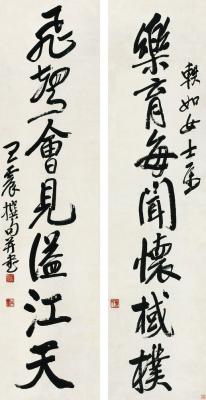 軼如女士正
樂育每聞懷棫樸
飛聲會見溢江天
王震撰句并書